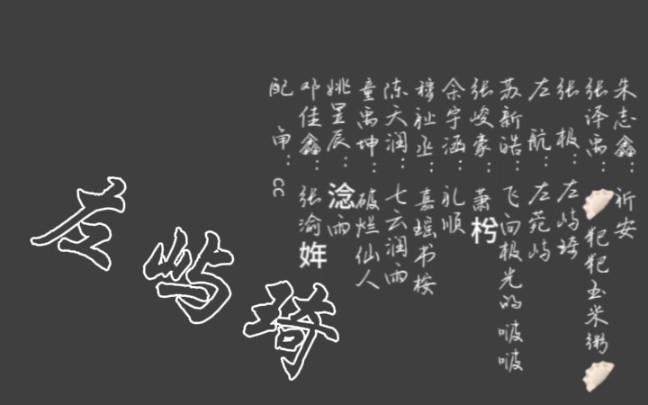 朱志鑫：祈安
张泽禹：🥟犯犯玉米粥🥟
张极：左屿琦
左航：左苑屿
苏新皓：飞向极光的啵啵
张峻豪：萧枍
余宇涵：礼顺
穆祉丞：喜瑶书桉
陈天润：七云润雨
童禹坤：破烂仙人
姚昱辰：淰雨
邓佳鑫：张渝姩
配角：cc
左屿琦